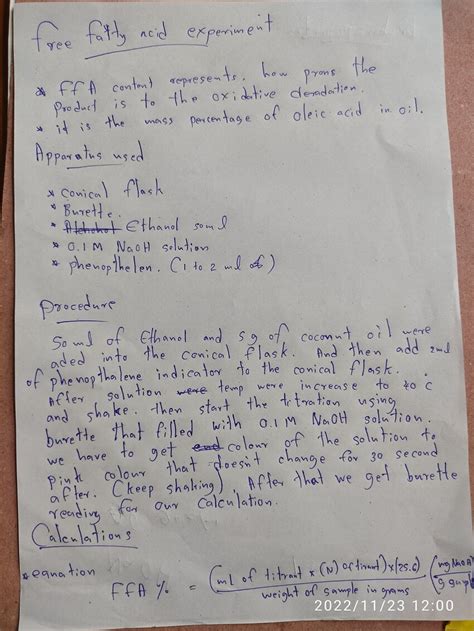 free fatty acid experiment
* FFA content represents. how prons the
product is to the oxidative deradation.
* it is the mass percentage of oleic acid in oil.
Apparatus used
* conical flask
* Burette.
* Alchohol Ethanol 50 ml
* 0.1 M NaOH solution
* phenopthelen. (1 to 2 ml of)
Procedure
50 ml of Ethanol and 5g of coconut oil were
aded into the conical flask. And then add 2ml
of phenopthalene indicator to the conical flask.
After solution were temp were increase to 40 c
and shake. then start the titration using
burette that filled with 0.1 M NaOH solution.
we have to get end colour of the solution to
pink colour that doesn't change for 30 second
after. (keep shaking). After that we get burette
reading for our calculation.
Calculations
* eqnation
FFA % = (ml of titrant x (N) of tirant) x (25.6) (mg NaO
weight of sample in grams g
2022/11/23 12:00